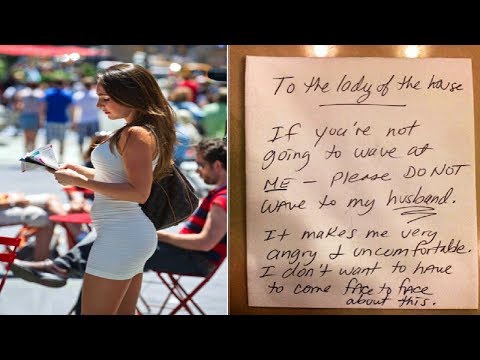 To the lady of the house
If you're not
going to wave at
ME - Please DO NOT
wave to my husband.
It makes me very
angry & uncomfortable.
I don't want to have
to come face to face
about this.